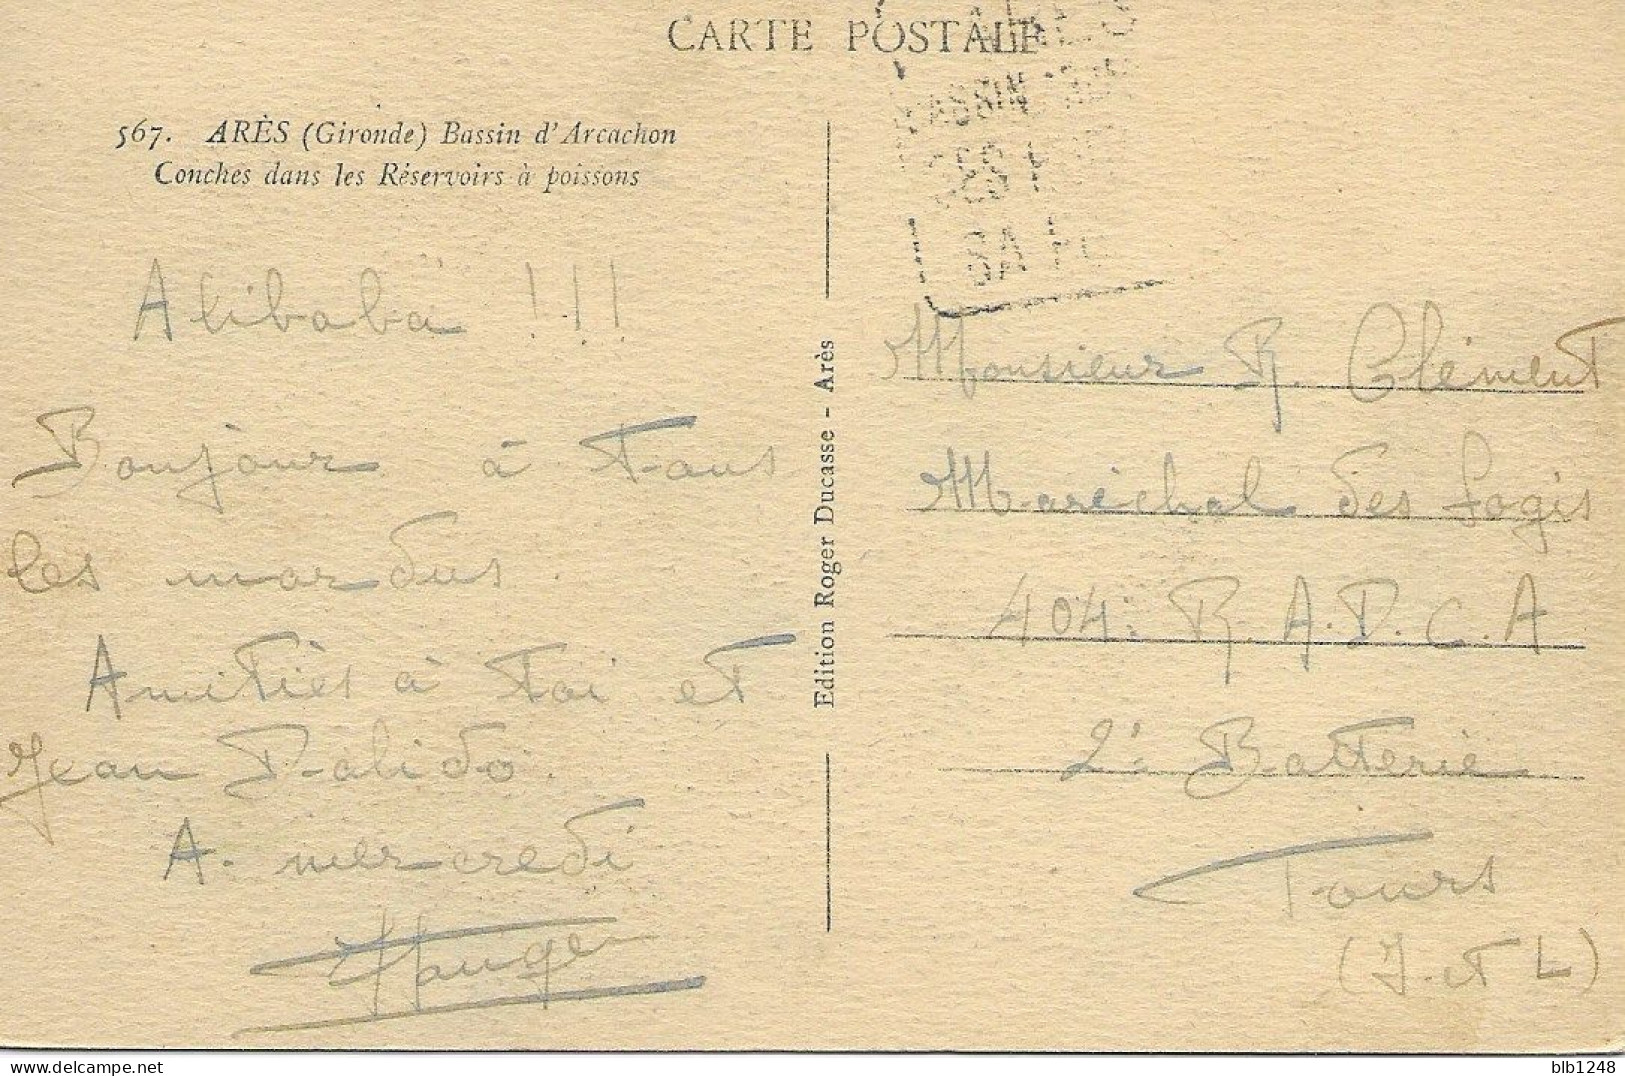 CARTE POSTALE
567. ARÈS (Gironde) Bassin d'Arcachon
Conches dans les Réservoirs à poissons
Alibaba !!!
Bonjour à tous
les mordus.
Amitiés à toi et
Jean Dalido.
A. mercredi
Edition Roger Ducasse - Arès
BASSIN
SES
BA
Monsieur R. Clément
Maréchal des Logis
404: R.A.D.C.A
2e Batterie
Tours
(I. et L)
blb1248